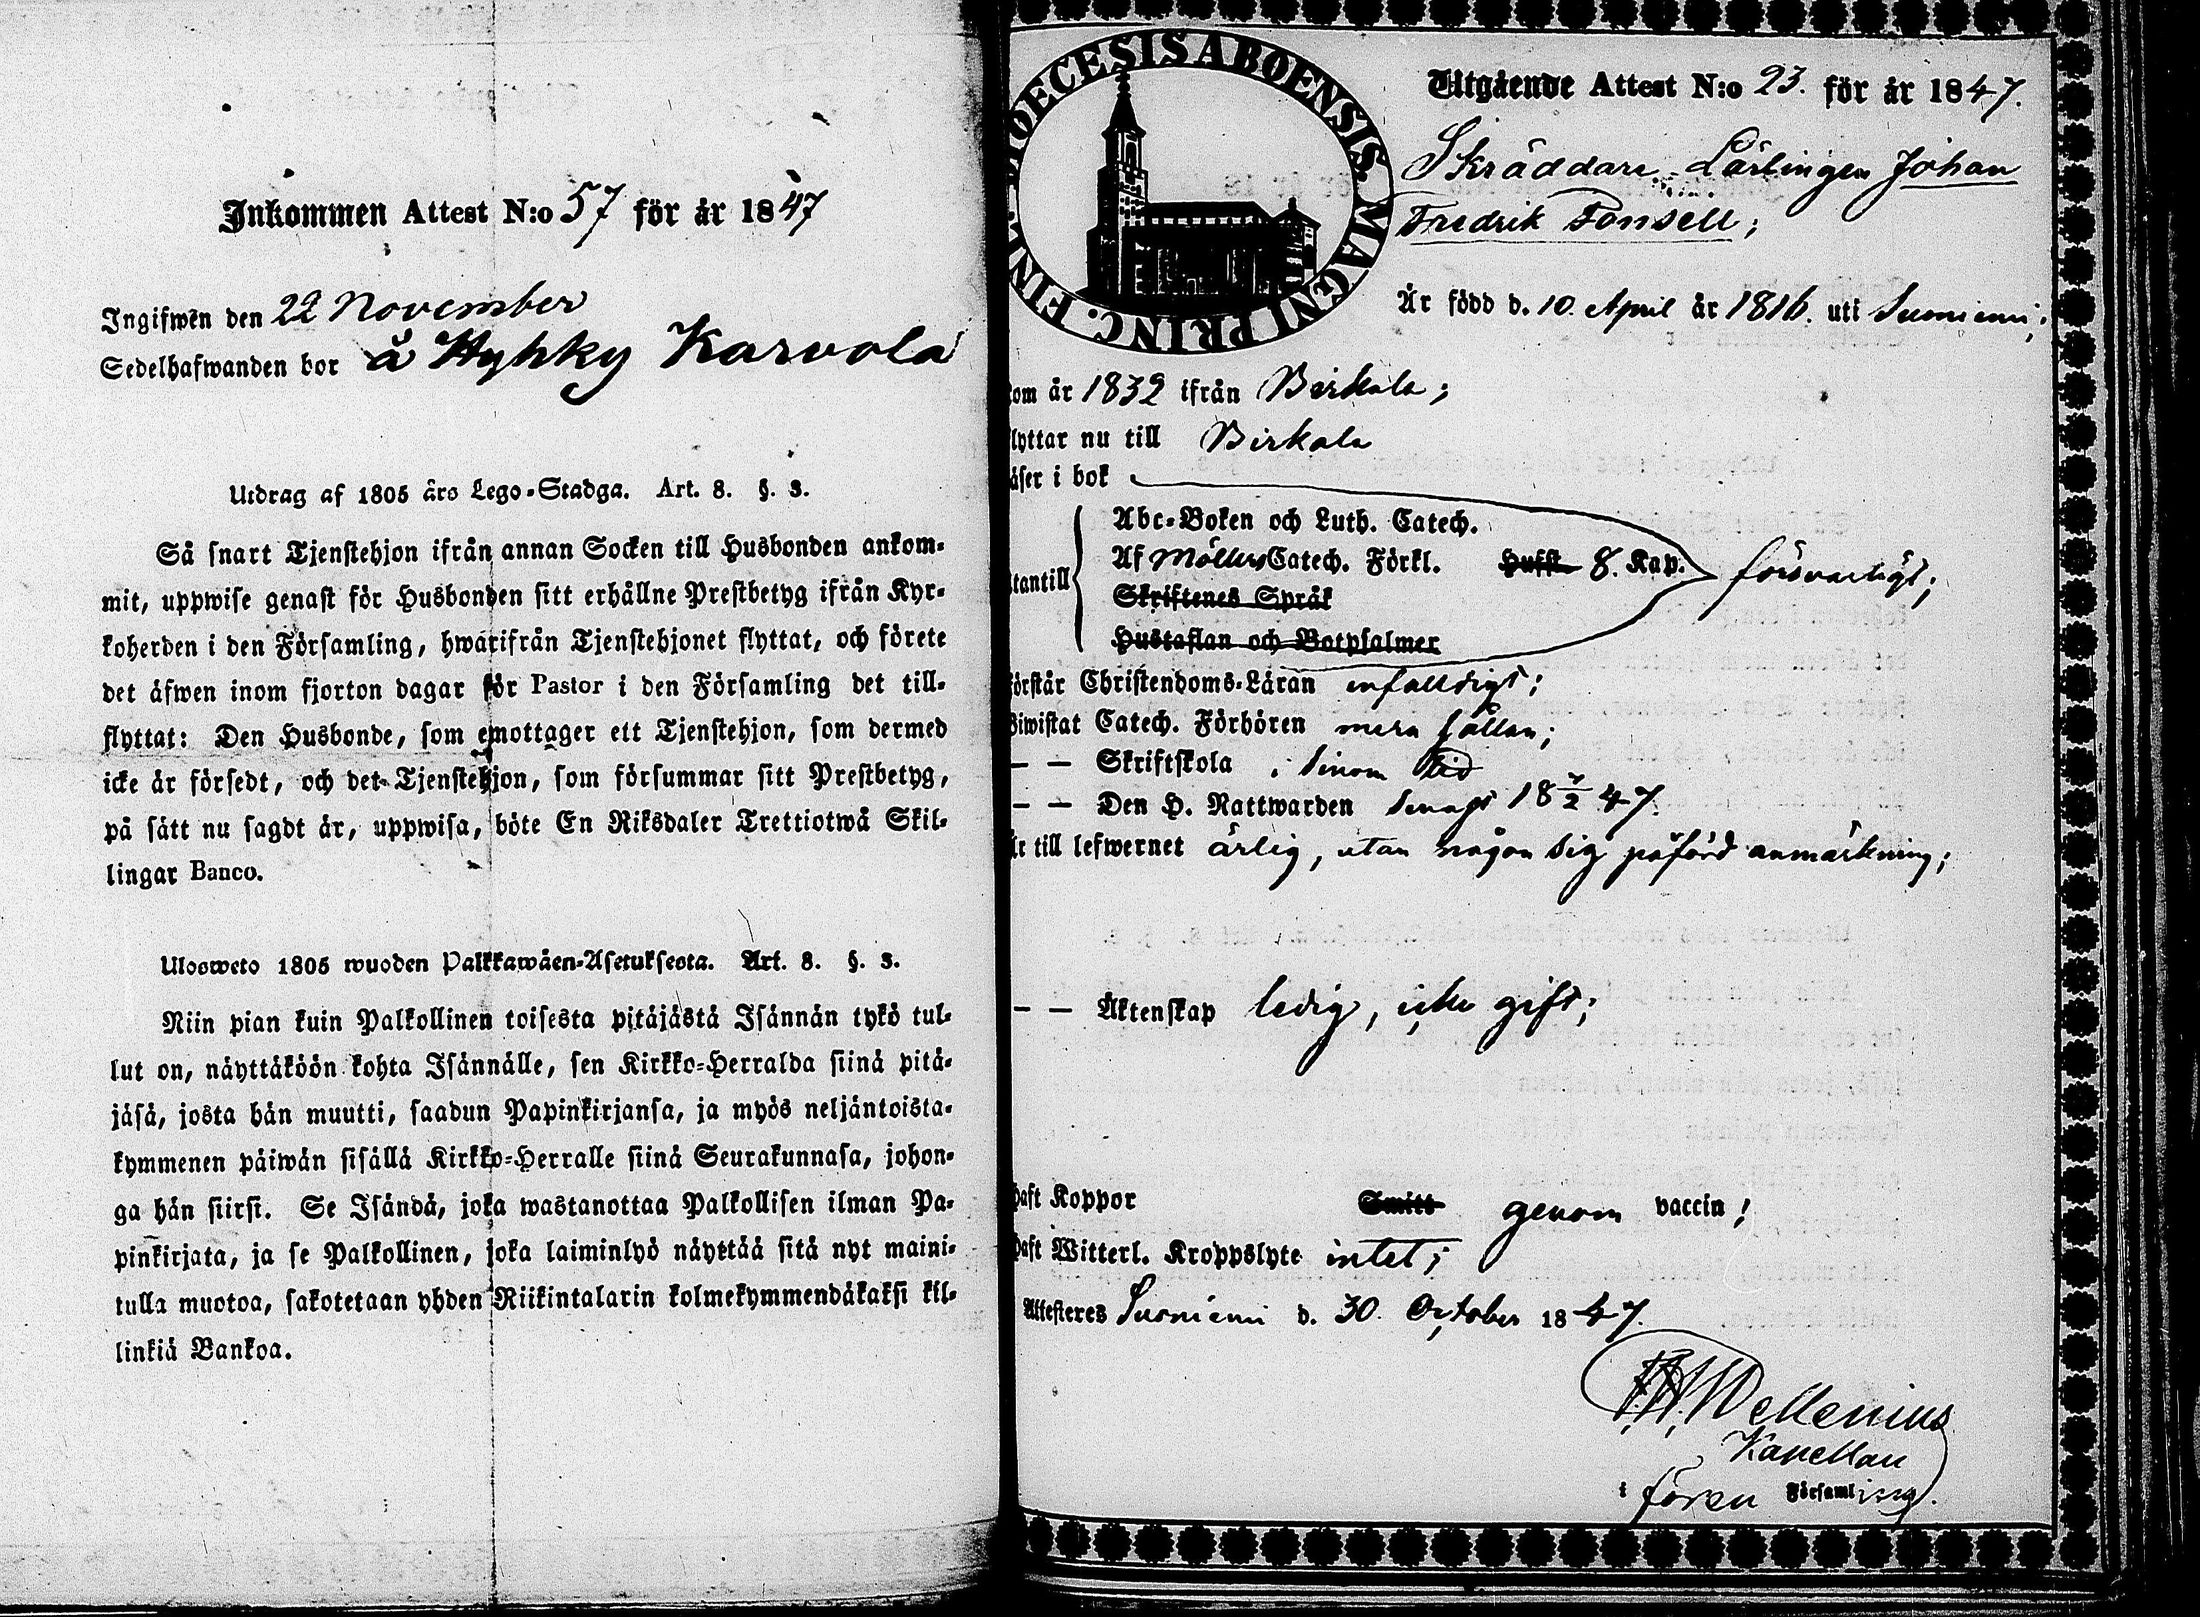 Inkommen Attest N:o 57 för år 1847
Ingifwen den 22 November
Sedelhafwanden bor å Hyhky Karvola
Utdrag af 1805 års Lego-Stadga. Art. 8. §. 3.
Så snart Tjenstehjon ifrån annan Socken till Husbonden ankom-
mit, uppwise genast för Husbonden sitt erhållne Prestbetyg ifrån Kyr-
koherden i den Församling, hwarifrån Tjenstehjonet flyttat, och förete
det äfwen inom fjorton dagar för Pastor i den Församling det till-
flyttat: Den Husbonde, som emottager ett Tjenstehjon, som dermed
icke är försedt, och det Tjenstehjon, som försummar sitt Prestbetyg,
på sätt nu sagdt är, uppwisa, böte En Riksdaler Trettiotwå Skil-
lingar Banco.
Ulosweto 1805 wuoden Palkkawäen-Asetuksesta. Art. 8. §. 3.
Niin pian kuin Palkollinen toisesta pitäjästä Isännän tykö tul-
lut on, näyttäköön kohta Isännälle, sen Kirkko-Herralda siinä pitä-
jäsä, josta hän muutti, saadun Papinkirjansa, ja myös neljäntoista-
kymmenen päiwän sisällä Kirkko-Herralle siinä Seurakunnasa, johon-
ga hän siirsi. Se Isändä, joka wastanottaa Palkollisen ilman Pa-
pinkirjata, ja se Palkollinen, joka laiminlyö näyttää sitä nyt maini-
tulla muotoa, sakotetaan yhden Riikintalarin kolmekymmendäkaksi kil-
linkiä Bankoa.
DIOECESIS ABOENSIS. MAGNI PRINC. FINL.
Utgående Attest N:o 23. för år 1847.
Skräddare Lärlingen Johan
Fredrik Fonsell;
Är född d. 10. April år 1816. uti Suoniemi;
kom år 1832 ifrån Birkala;
flyttar nu till Birkala
läser i bok
Abc-Boken och Luth. Catech.
utantill Af Möllers Catech. Förkl. Hufst. 8. Kap. försvarligt;
Skriftenes Språk
Hustaflan och Botpsalmer
förstår Christendoms-Läran enfaldigt;
Biwistat Catech. Förhören mera sällan;
— — Skriftskola i sinom tid
— — Den H. Nattwarden senast 18 7/2 47.
Är till lefwernet ärlig, utan någon sig påförd anmärkning;
— — Äktenskap ledig, icke gift;
haft Koppor Smitt genom vaccin;
haft Witterl. Kroppslyte intet;
Attesteres Suoniemi d. 30. October 1847.
Wellenius
Kapellan
i fören Församling.